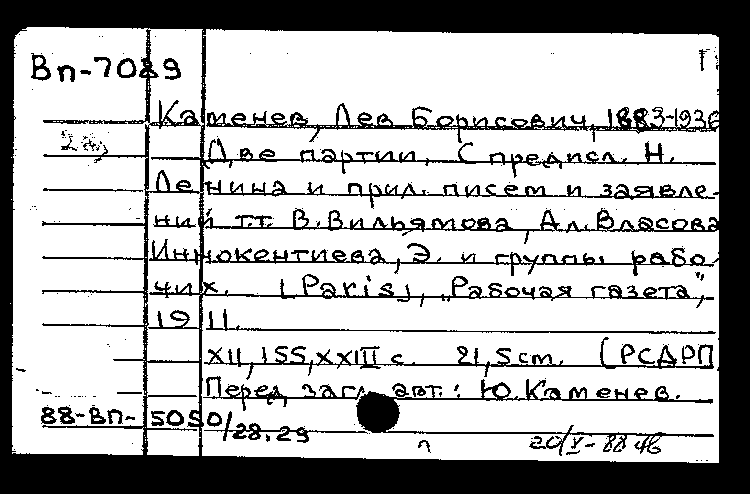 Вп-7089
Каменев, Лев Борисович, 1883-1936
2аз
Две партии. С предисл. Н.
Ленина и прил. писем и заявле-
ний т.т. В. Вильямова, Ал. Власова
Иннокентиева, Э. и группы рабо-
чих. [Paris], „Рабочая газета",
1911.
XII, 155, XXIII с. 21,5 cm. (РСДРП
Перед загл. авт.: Ю. Каменев.
88-ВП-5050/28.29
20/X-88